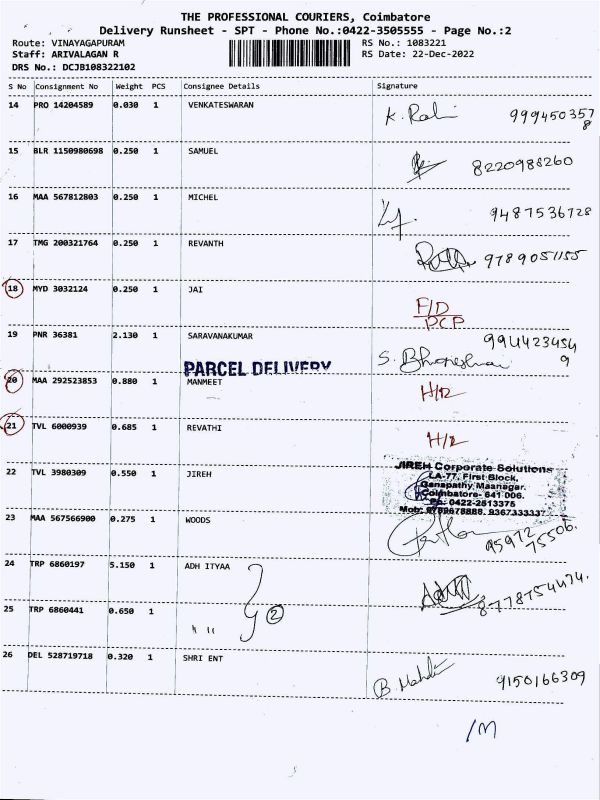 THE PROFESSIONAL COURIERS, Coimbatore
Delivery Runsheet - SPT - Phone No.:0422-3505555 - Page No.:2
Route: VINAYAGAPURAM RS No.: 1083221
Staff: ARIVALAGAN R RS Date: 22-Dec-2022
DRS No.: DCJB108322102
S No Consignment No Weight PCS Consignee Details Signature
14 PRO 14204589 0.030 1 VENKATESWARAN K. 9994503578
15 BLR 1150980698 0.250 1 SAMUEL 8220988260
16 MAA 567812803 0.250 1 MICHEL 9487536728
17 TMG 200321764 0.250 1 REVANTH 9789051155
18 MYD 3032124 0.250 1 JAI F/D
PCP
19 PNR 36381 2.130 1 SARAVANAKUMAR S. 9944234549
PARCEL DELIVERY
20 MAA 292523853 0.880 1 MANMEET
21 TVL 6000939 0.685 1 REVATHI
22 TVL 3980309 0.550 1 JIREH JIREH Corporate Solutions
LA-77, First Block,
Ganapathy Maanagar,
Coimbatore- 641 006.
Ph: 0422-2513375
Mob:
23 MAA 567566900 0.275 1 WOODS 95972 75506.
24 TRP 6860197 5.150 1 ADH ITYAA 8778754474.
25 TRP 6860441 0.650 1 " 2
26 DEL 528719718 0.320 1 SHRI ENT B. 9150166309
/M